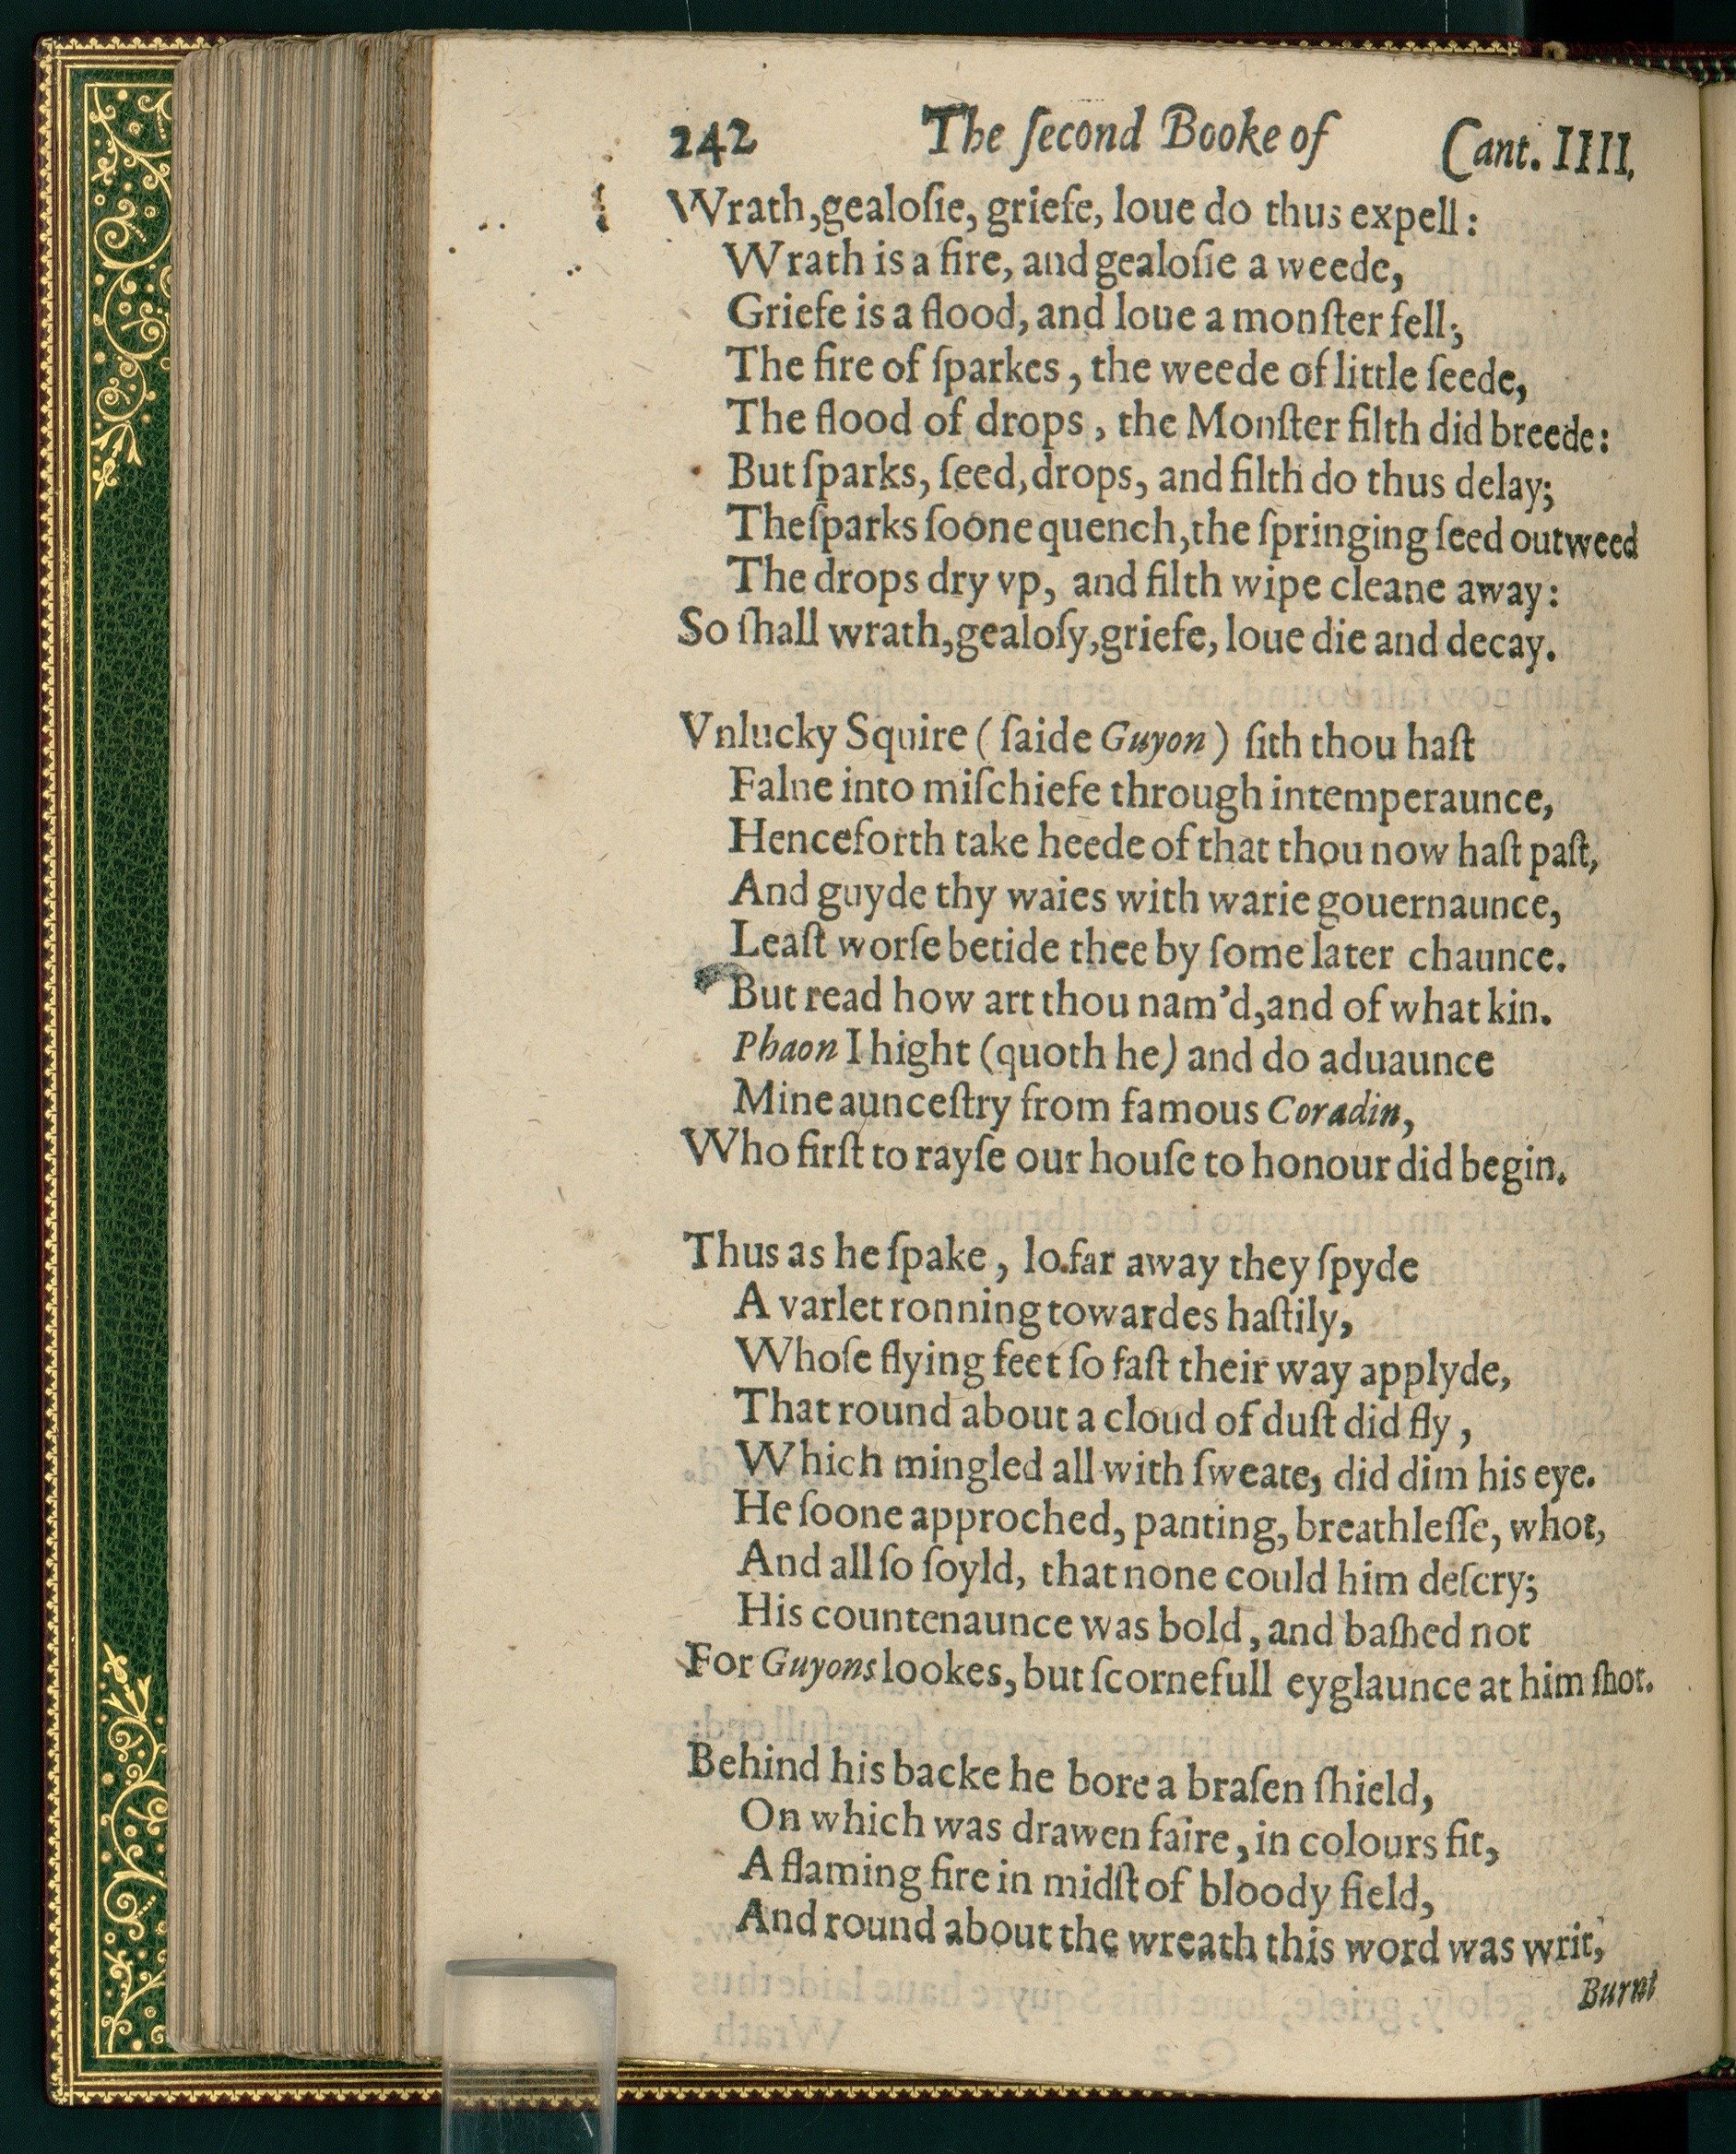 242 The ſecond Booke of Cant. IIII.
Wrath,gealoſie, griefe, loue do thus expell:
Wrath is a fire, and gealoſie a weede,
Griefe is a flood, and loue a monſter fell;
The fire of ſparkes, the weede of little ſeede,
The flood of drops, the Monſter filth did breede:
But ſparks, ſeed, drops, and filth do thus delay;
The ſparks ſoone quench, the ſpringing ſeed outweed
The drops dry vp, and filth wipe cleane away:
So ſhall wrath, gealoſy, griefe, loue die and decay.
Vnlucky Squire (ſaide Guyon) ſith thou haſt
Falne into miſchiefe through intemperaunce,
Henceforth take heede of that thou now haſt paſt,
And guyde thy waies with warie gouernaunce,
Leaſt worſe betide thee by ſome later chaunce.
But read how art thou nam'd, and of what kin.
Phaon I hight (quoth he) and do aduaunce
Mine aunceſtry from famous Coradin,
Who firſt to rayſe our houſe to honour did begin.
Thus as he ſpake, lo.far away they ſpyde
A varlet ronning towardes haſtily,
Whoſe flying feet ſo faſt their way applyde,
That round about a cloud of duſt did fly,
Which mingled all with ſweate, did dim his eye.
He ſoone approched, panting, breathleſſe, whot,
And all ſo ſoyld, that none could him deſcry;
His countenaunce was bold, and baſhed not
For Guyons lookes, but ſcornefull eyglaunce at him ſhot.
Behind his backe he bore a braſen ſhield,
On which was drawen faire, in colours fit,
A flaming fire in midſt of bloody field,
And round about the wreath this word was writ,
Burnt